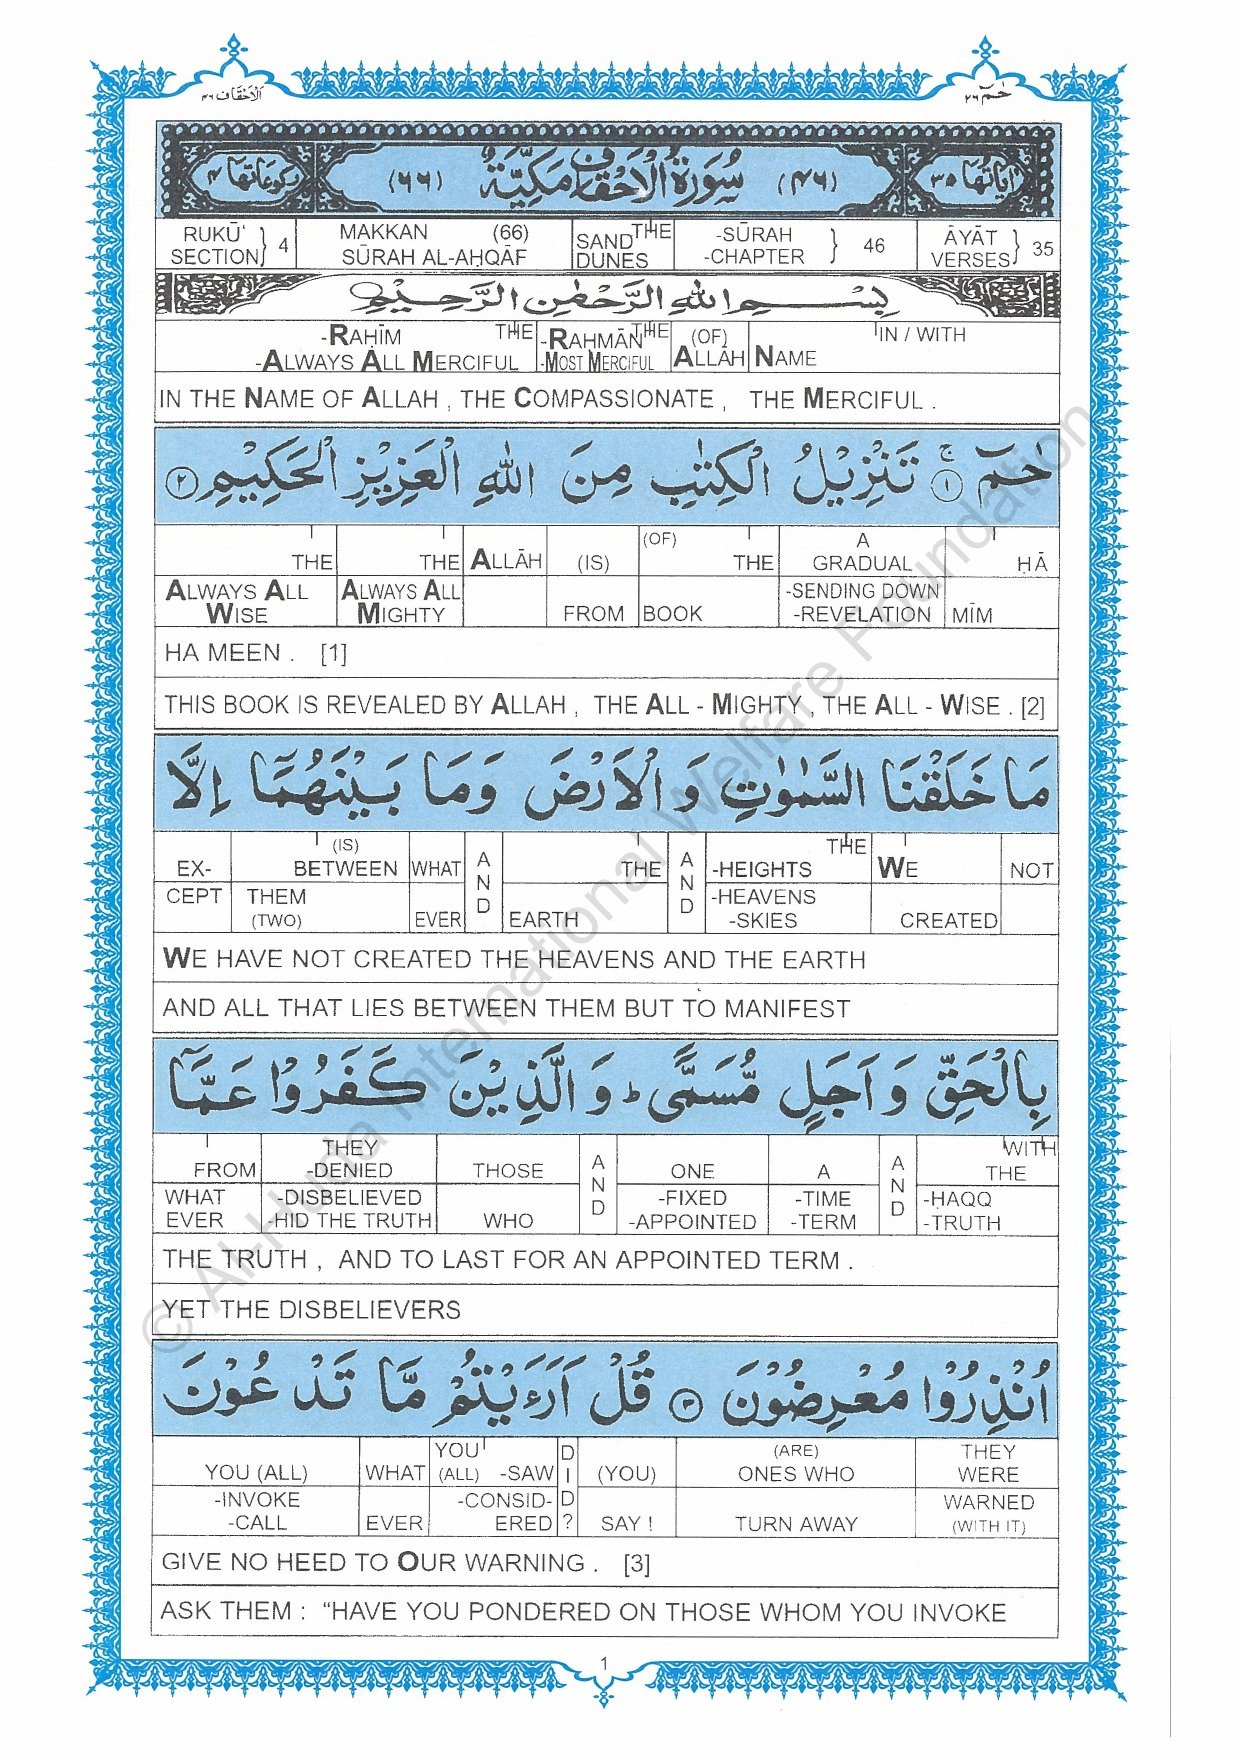 الاحقاف ٤٦
حٰمٓ ٢٦
اٰیاتھا ٣٥ (٤٦) سُوْرَۃُ الْاَحْقَافِ مَکِّیَّۃٌ (٦٦) رکوعاتھا ٤
RUKŪ‘ SECTION } 4 MAKKAN (66) SŪRAH AL-AḤQĀF THE SAND DUNES -SŪRAH -CHAPTER } 46 ĀYĀT VERSES } 35
بِسْمِ اللهِ الرَّحْمٰنِ الرَّحِیْمِ
-RAHĪM THE -RAHMĀN THE (OF) IN / WITH
-ALWAYS ALL MERCIFUL -MOST MERCIFUL ALLAH NAME
IN THE NAME OF ALLAH , THE COMPASSIONATE , THE MERCIFUL .
حٰمٓ ۚ ۝١ تَنْزِیْلُ الْکِتٰبِ مِنَ اللهِ الْعَزِیْزِ الْحَکِیْمِ ۝٢
THE THE ALLĀH (IS) (OF) THE A GRADUAL ḤĀ
ALWAYS ALL WISE ALWAYS ALL MIGHTY FROM BOOK -SENDING DOWN -REVELATION MĪM
HA MEEN . [1]
THIS BOOK IS REVEALED BY ALLAH , THE ALL - MIGHTY , THE ALL - WISE . [2]
مَا خَلَقْنَا السَّمٰوٰتِ وَ الْاَرْضَ وَمَا بَیْنَهُمَاۤ اِلَّا
EX- (IS) BETWEEN WHAT AND THE AND THE -HEIGHTS WE NOT
CEPT THEM (TWO) EVER EARTH -HEAVENS -SKIES CREATED
WE HAVE NOT CREATED THE HEAVENS AND THE EARTH
AND ALL THAT LIES BETWEEN THEM BUT TO MANIFEST
بِالْحَقِّ وَ اَجَلٍ مُّسَمًّی ؕ وَ الَّذِیْنَ کَفَرُوْا عَمَّاۤ
FROM THEY -DENIED THOSE AND ONE A AND WITH THE
WHAT EVER -DISBELIEVED -HID THE TRUTH WHO -FIXED -APPOINTED -TIME -TERM -ḤAQQ -TRUTH
THE TRUTH , AND TO LAST FOR AN APPOINTED TERM .
YET THE DISBELIEVERS
اُنْذِرُوْا مُعْرِضُوْنَ ۝٣ قُلْ اَرَءَیْتُمْ مَّا تَدْعُوْنَ
YOU (ALL) WHAT YOU (ALL) -SAW DID? (YOU) (ARE) ONES WHO THEY WERE
-INVOKE -CALL EVER -CONSID- ERED SAY ! TURN AWAY WARNED (WITH IT)
GIVE NO HEED TO OUR WARNING . [3]
ASK THEM : “HAVE YOU PONDERED ON THOSE WHOM YOU INVOKE
1
© Al-Huda International Welfare Foundation